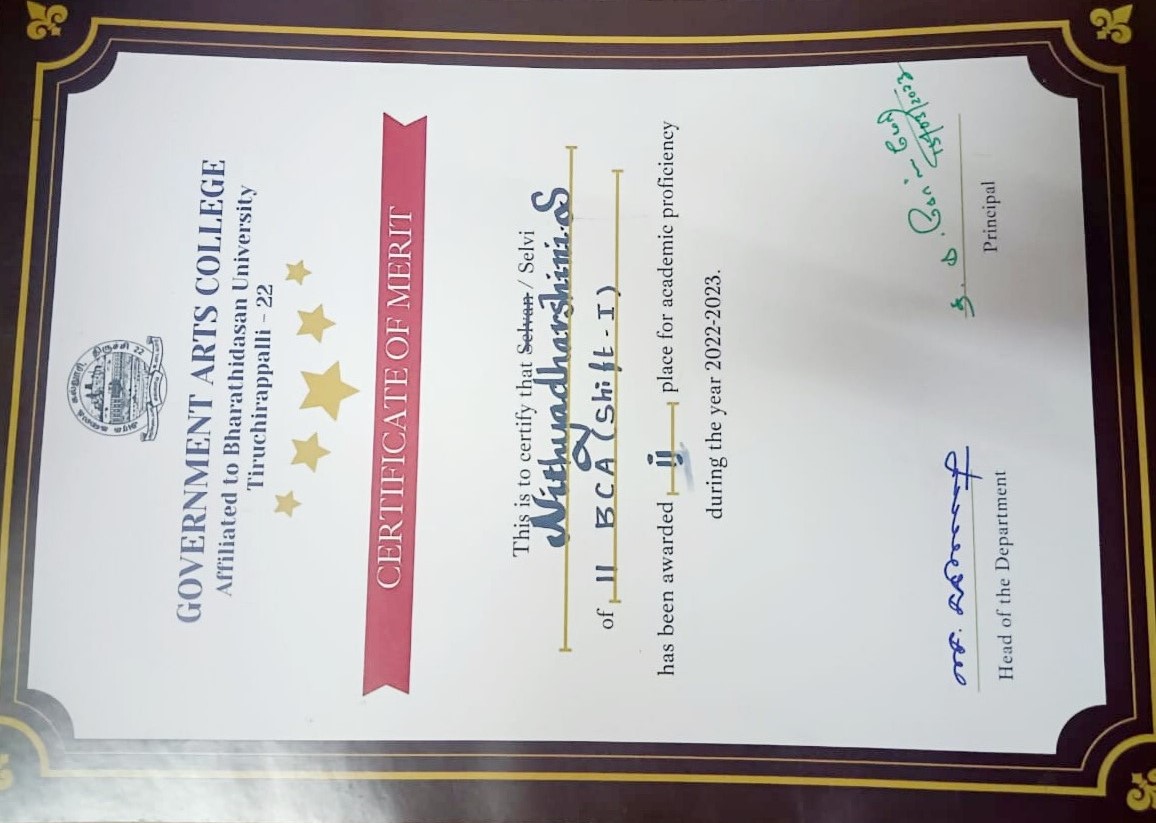 GOVERNMENT ARTS COLLEGE
Affiliated to Bharathidasan University
Tiruchirappalli - 22
CERTIFICATE OF MERIT
This is to certify that Selvan / Selvi
Nithyadharshini.S
of II BCA (Shift - I)
has been awarded ii place for academic proficiency
during the year 2022-2023.
Head of the Department
Principal